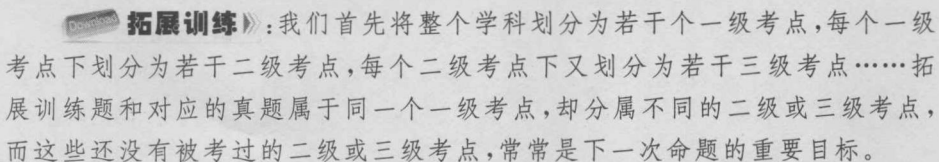 Download 拓展训练：我们首先将整个学科划分为若干个一级考点，每个一级
考点下划分为若干二级考点，每个二级考点下又划分为若干三级考点……拓
展训练题和对应的真题属于同一个一级考点，却分属不同的二级或三级考点，
而这些还没有被考过的二级或三级考点，常常是下一次命题的重要目标。